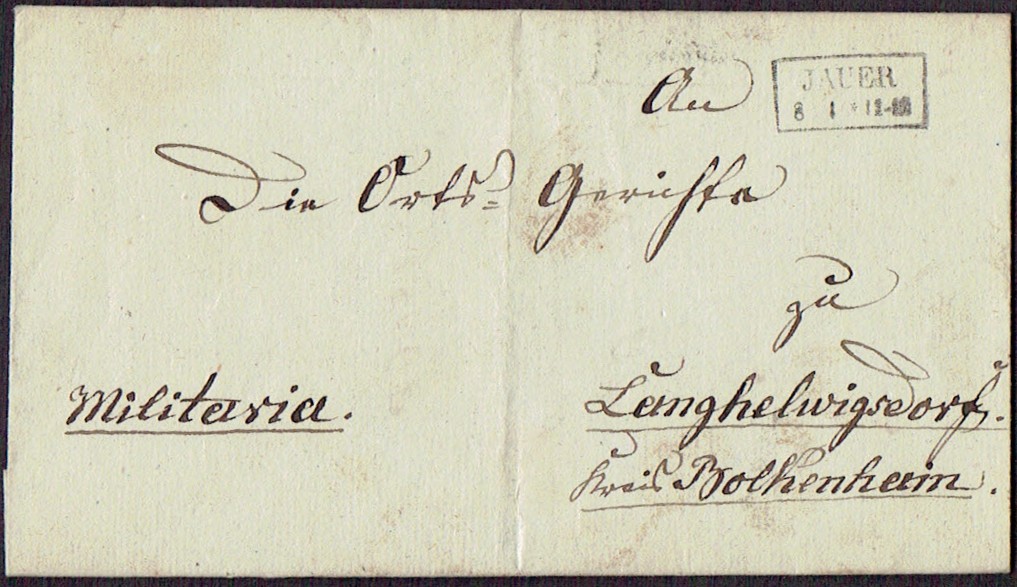 An
JAUER
8 1 * 11-12
Die Orts= Gerichte
zu
Militaria.
Langhelwigsdorf.
Kreis Bolkenhain.